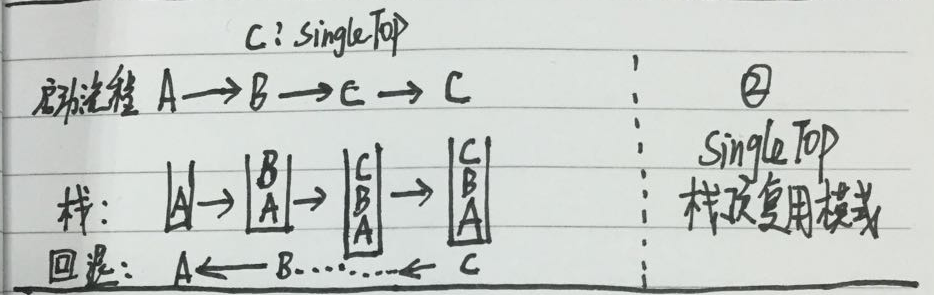 C: SingleTop
启动流程 A → B → C → C
②
SingleTop
栈顶复用模式
栈: A → B A → C B A → C B A
回退: A ← B ...... ← C